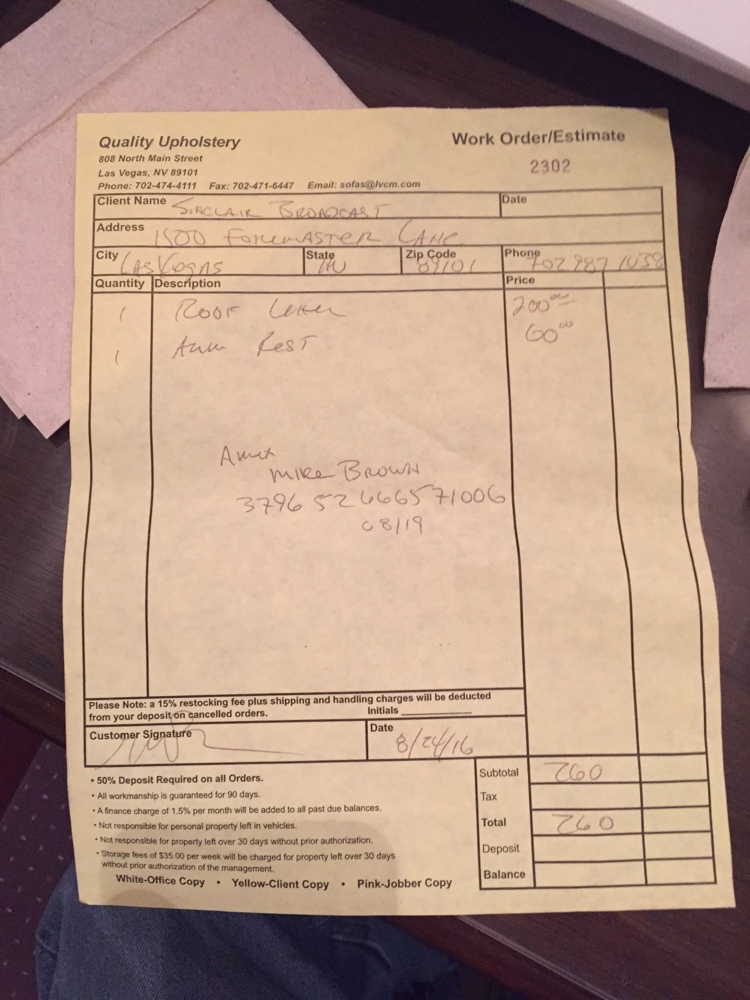 Quality Upholstery
808 North Main Street
Las Vegas, NV 89101
Phone: 702-474-4111 Fax: 702-471-6447 Email: sofas@lvcm.com
Work Order/Estimate
2302
Client Name Sinclair Broadcast
Date
Address 1500 Foremaster Lane
City Las Vegas State NV Zip Code 89101 Phone 702 987 1038
Quantity Description Price
1 Roof 200 00
1 Arm Rest 60 00
Amex
Mike Brown
3796 526665 71006
08/19
Please Note: a 15% restocking fee plus shipping and handling charges will be deducted
from your deposit on cancelled orders. Initials
Customer Signature
Date 8/24/16
• 50% Deposit Required on all Orders.
• All workmanship is guaranteed for 90 days.
• A finance charge of 1.5% per month will be added to all past due balances.
• Not responsible for personal property left in vehicles.
• Not responsible for property left over 30 days without prior authorization.
• Storage fees of $35.00 per week will be charged for property left over 30 days
without prior authorization of the management.
White-Office Copy • Yellow-Client Copy • Pink-Jobber Copy
Subtotal 260
Tax
Total 260
Deposit
Balance